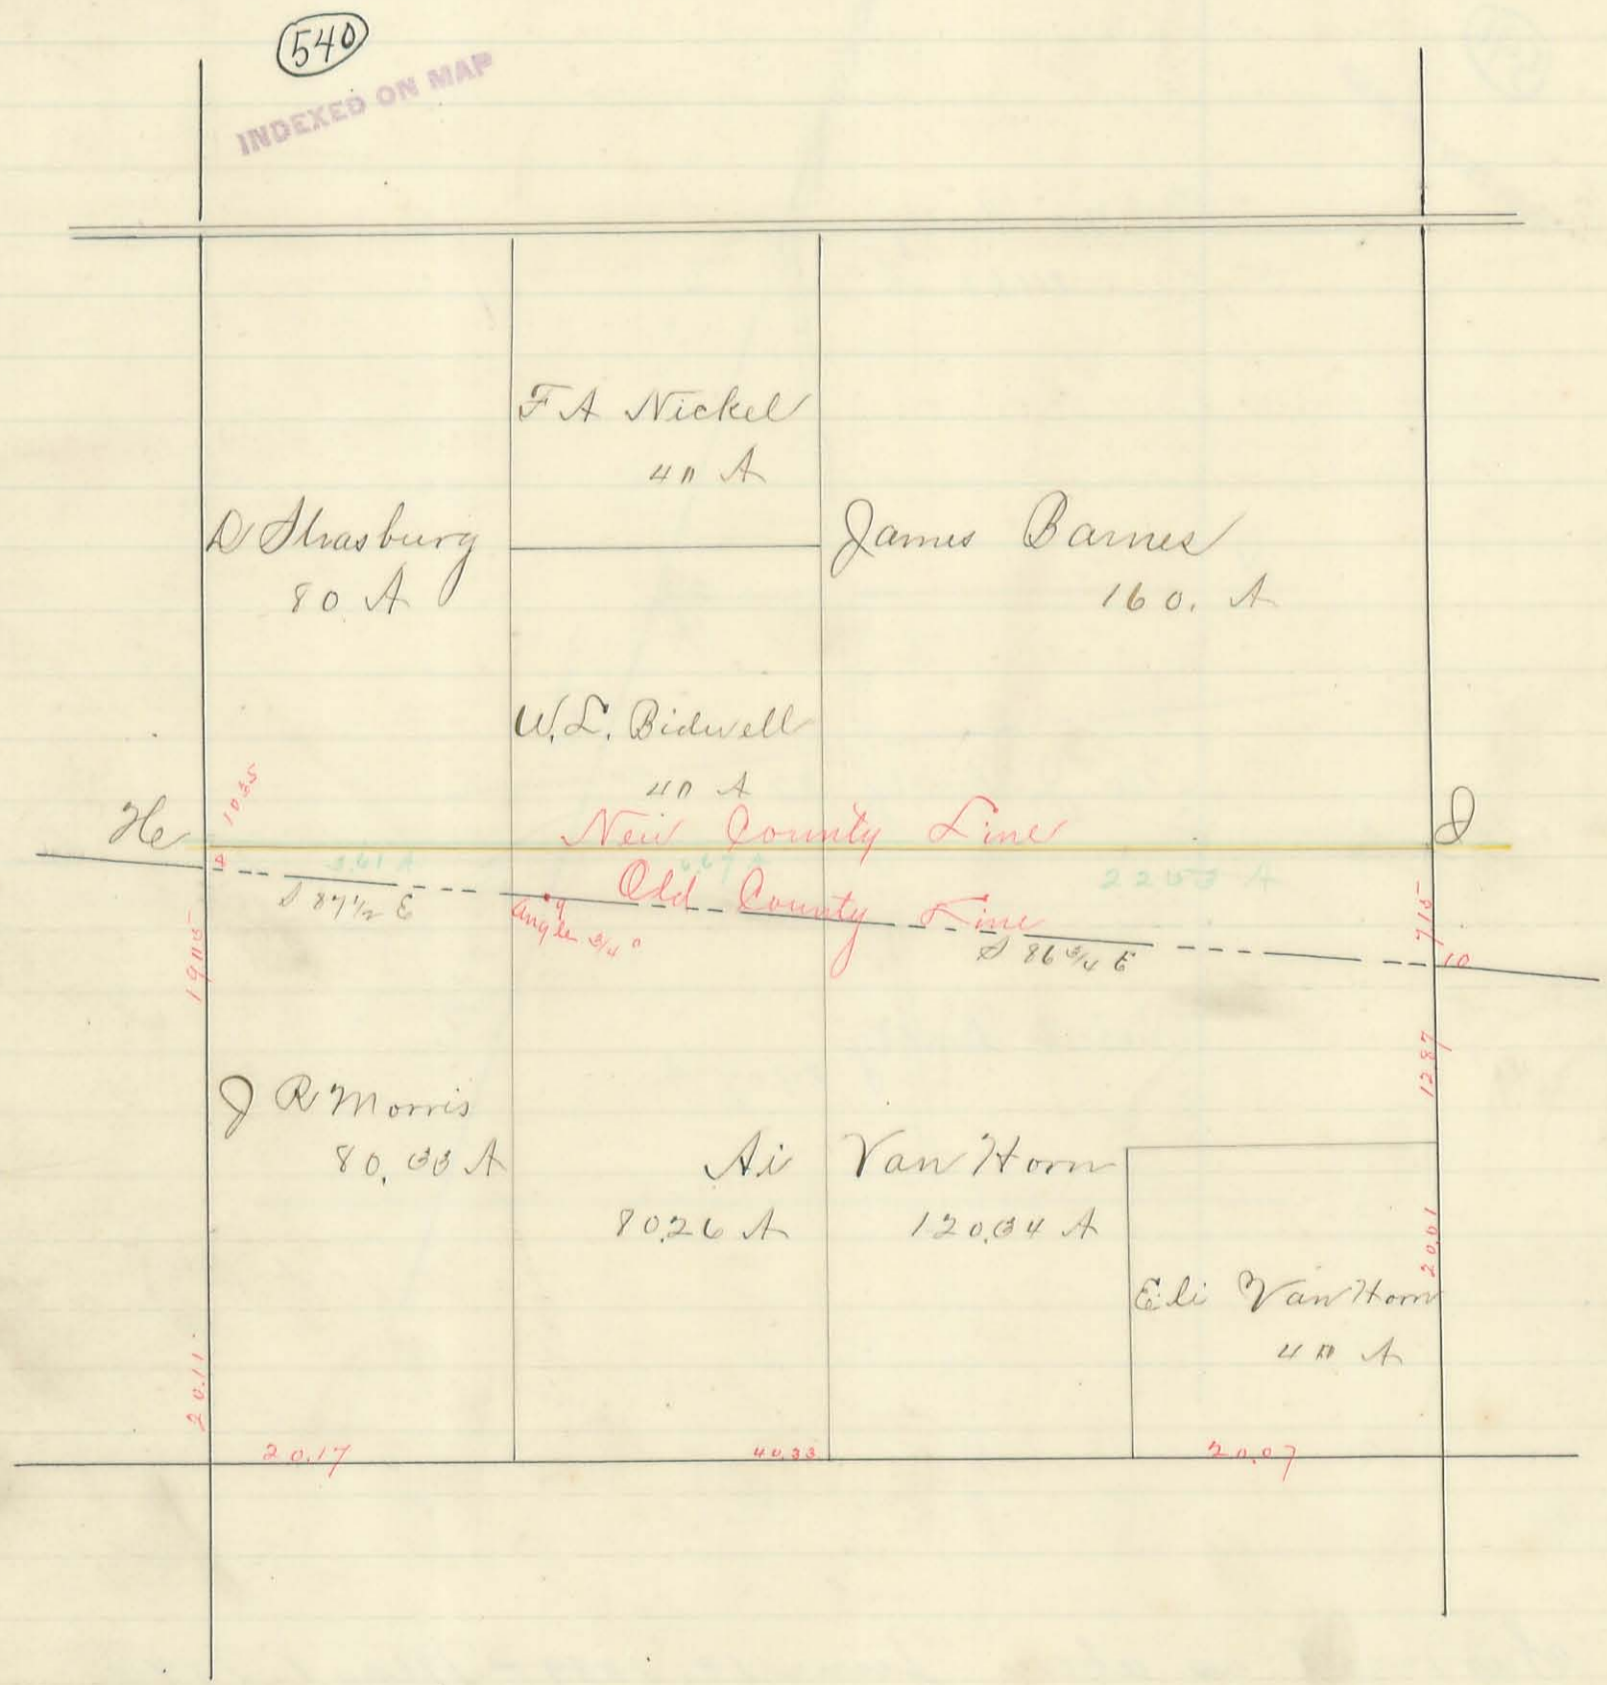 540
INDEXED ON MAP
F A Nickel
40 A
D Strasburg
80 A
James Barnes
160. A
W. L. Bidwell
40 A
He
1035
New County Line
I
4
3.61 A
6.67 A
S 87 1/2 E
Old County Line
9
Angle 3/4°
S 86 3/4 E
715
10
1287
J R Morris
80.33 A
Ai Van Horn
80.26 A
120.34 A
20.01
Eli Van Horn
40 A
20.11
20.17
40.33
20.07